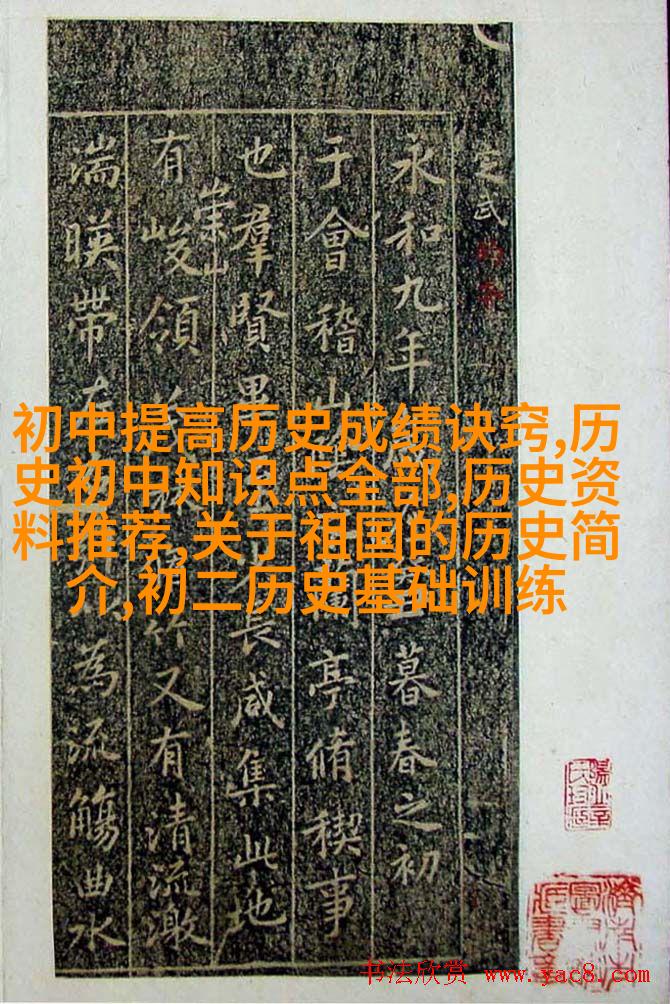 初中提高历史成绩诀窍,历
史初中知识点全部,历史资
料推荐,关于祖国的历史简
介,初二历史基础训练
定武
永和九年 暮春之初
于會稽山 亭脩稧事
也羣賢畢 長咸集此地
有崇山峻領 竹又有清流激
湍暎帶左 為流觴曲水
书法欣赏 www.yac8.com